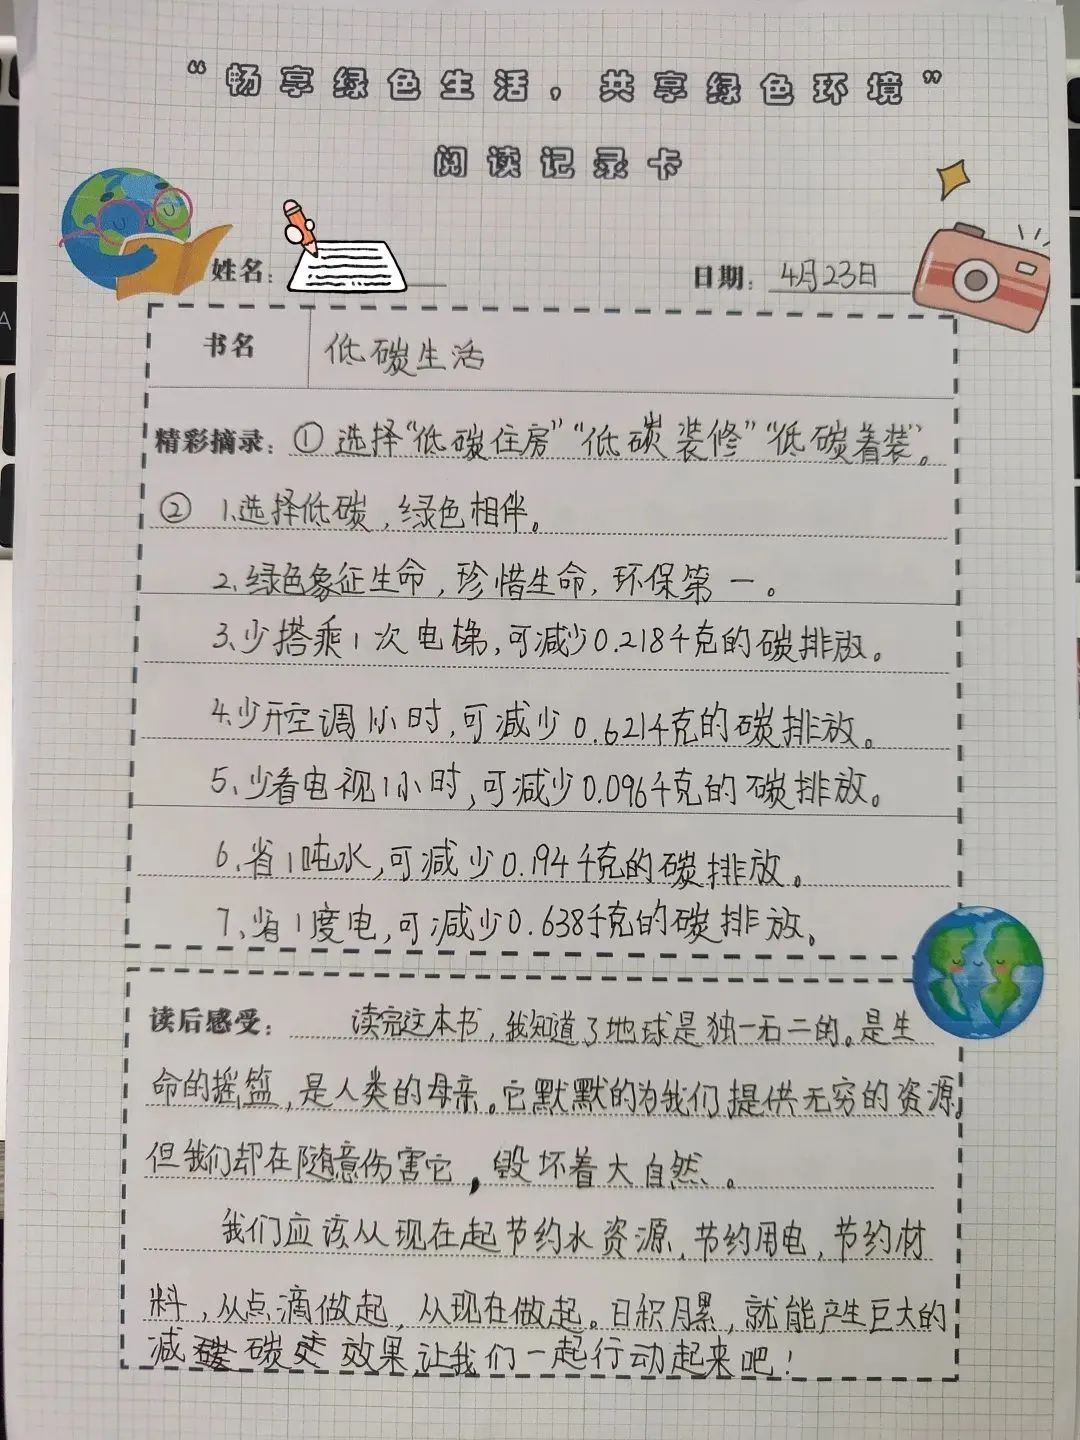 “畅享绿色生活，共享绿色环境”
阅读记录卡
姓名：
日期：4月23日
书名 低碳生活
精彩摘录：① 选择“低碳住房”“低碳装修”“低碳着装”。
② 1.选择低碳，绿色相伴。
2.绿色象征生命，珍惜生命，环保第一。
3、少搭乘1次电梯，可减少0.218千克的碳排放。
4.少开空调1小时，可减少0.621千克的碳排放。
5、少看电视1小时，可减少0.096千克的碳排放。
6、省1吨水，可减少0.194千克的碳排放。
7、省1度电，可减少0.638千克的碳排放。
读后感受：读完这本书，我知道了地球是独一无二的。是生
命的摇篮，是人类的母亲。它默默的为我们提供无穷的资源，
但我们却在随意伤害它，毁坏着大自然。
我们应该从现在起节约水资源，节约用电，节约材
料，从点滴做起，从现在做起。日积月累，就能产生巨大的
减碳效果，让我们一起行动起来吧！
A